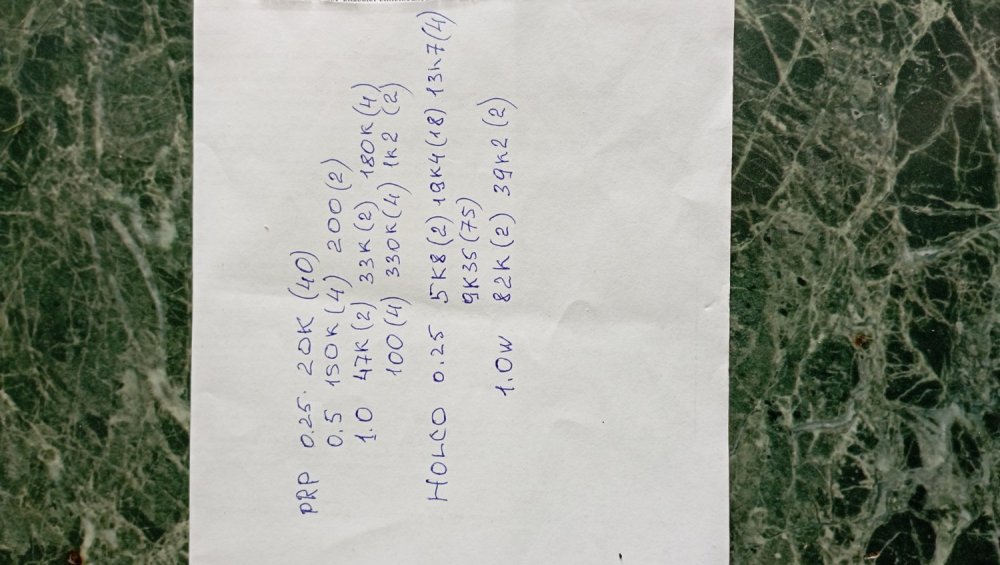 PRP 0.25. 20K (40)
0.5 150K(4) 200(2)
1.0 47K(2) 33K(2) 180K(4)
100(4) 330K(4) 1K2 (2)
HOLCO 0.25 5K8(2) 19K4(18) 13K7(4)
9K35(75)
1.0W 82K(2) 39K2(2)